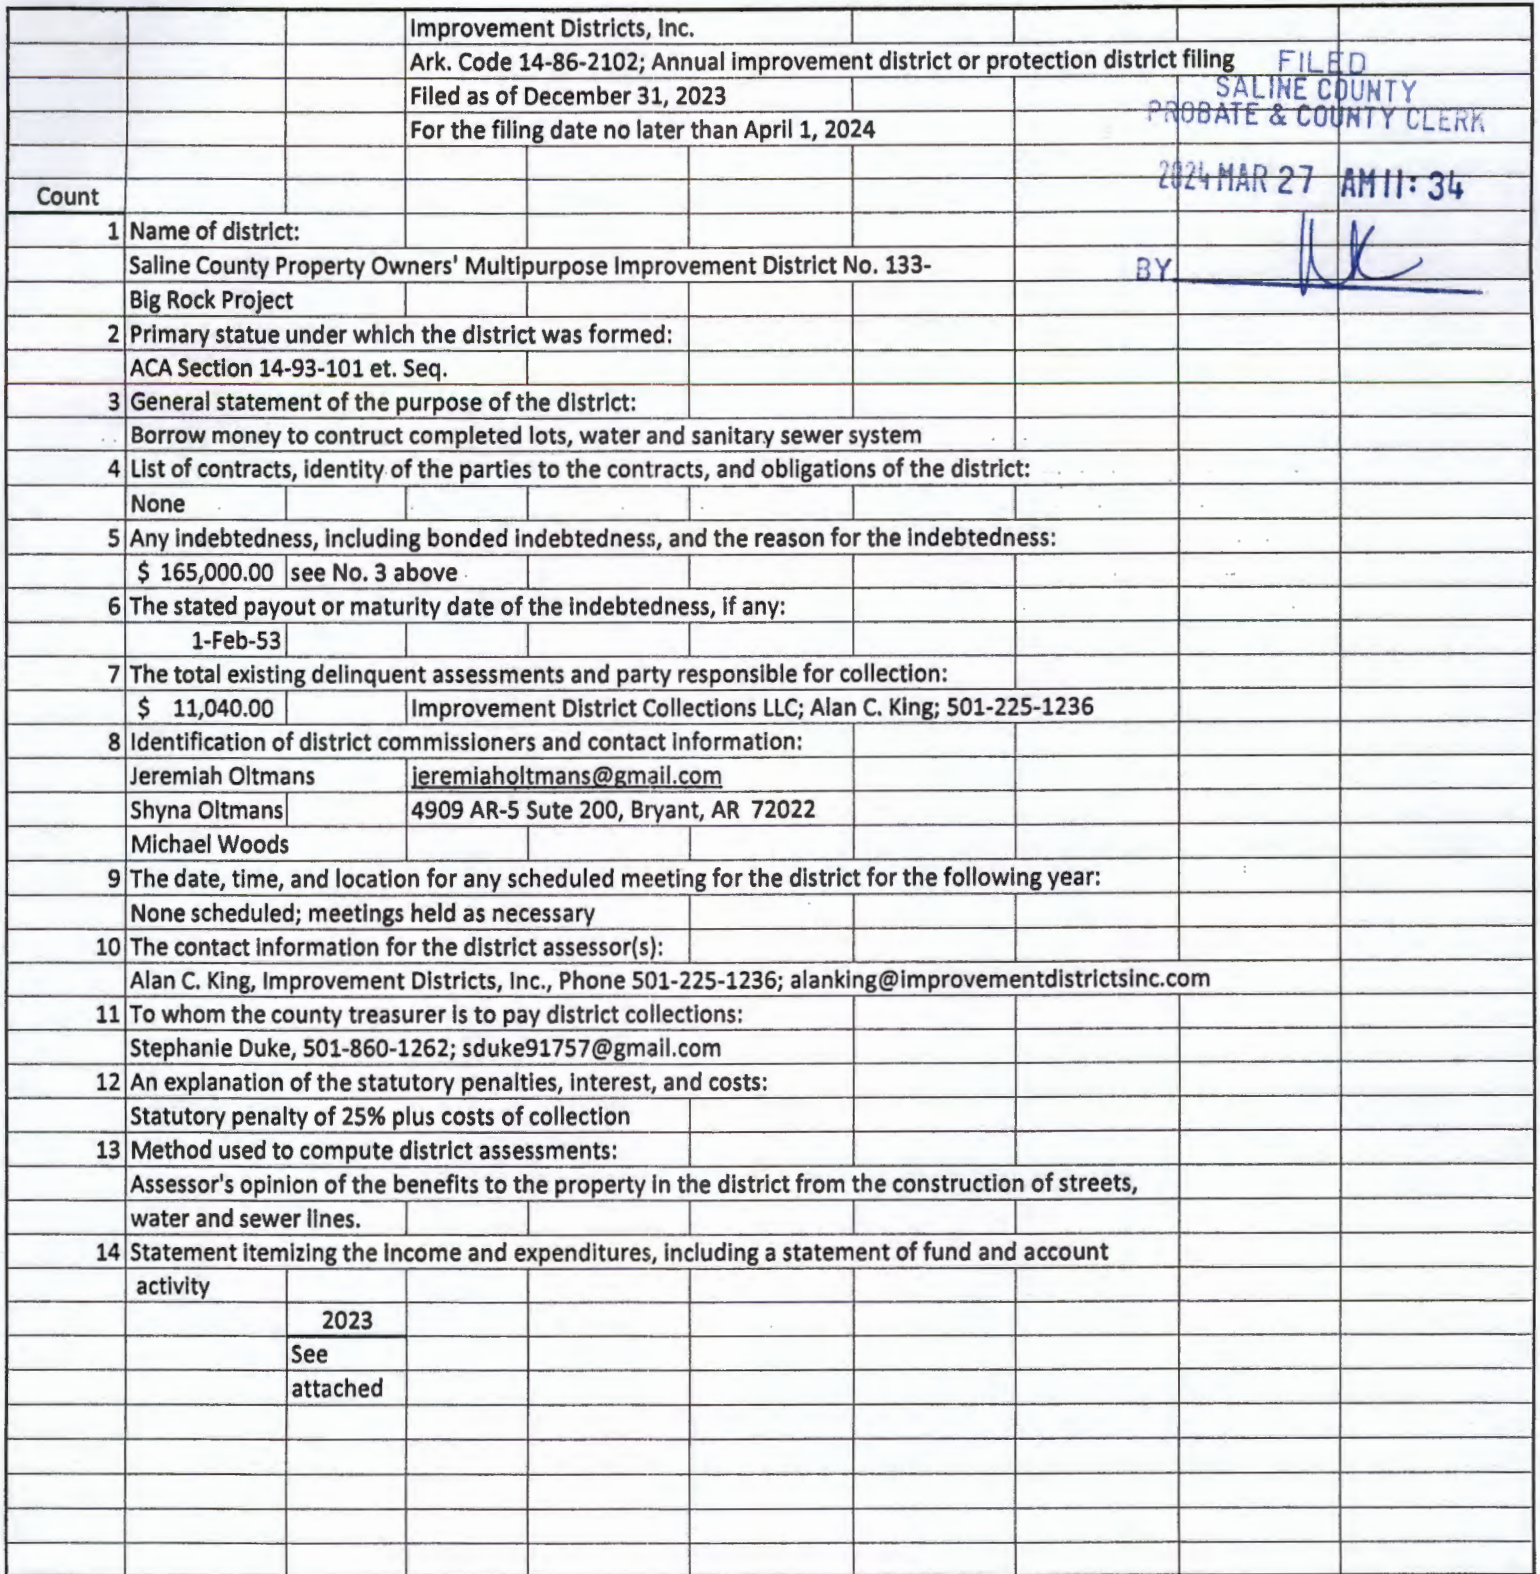 Improvement Districts, Inc.
Ark. Code 14-86-2102; Annual improvement district or protection district filing
Filed as of December 31, 2023
For the filing date no later than April 1, 2024
FILED
SALINE COUNTY
PROBATE & COUNTY CLERK
2024 MAR 27 AM 11: 34
BY
Count
1 Name of district:
Saline County Property Owners' Multipurpose Improvement District No. 133-
Big Rock Project
2 Primary statue under which the district was formed:
ACA Section 14-93-101 et. Seq.
3 General statement of the purpose of the district:
Borrow money to contruct completed lots, water and sanitary sewer system
4 List of contracts, identity of the parties to the contracts, and obligations of the district:
None
5 Any indebtedness, including bonded indebtedness, and the reason for the indebtedness:
$ 165,000.00 see No. 3 above
6 The stated payout or maturity date of the indebtedness, if any:
1-Feb-53
7 The total existing delinquent assessments and party responsible for collection:
$ 11,040.00 Improvement District Collections LLC; Alan C. King; 501-225-1236
8 Identification of district commissioners and contact information:
Jeremiah Oltmans jeremiaholtmans@gmail.com
Shyna Oltmans 4909 AR-5 Sute 200, Bryant, AR 72022
Michael Woods
9 The date, time, and location for any scheduled meeting for the district for the following year:
None scheduled; meetings held as necessary
10 The contact information for the district assessor(s):
Alan C. King, Improvement Districts, Inc., Phone 501-225-1236; alanking@improvementdistrictsinc.com
11 To whom the county treasurer is to pay district collections:
Stephanie Duke, 501-860-1262; sduke91757@gmail.com
12 An explanation of the statutory penalties, interest, and costs:
Statutory penalty of 25% plus costs of collection
13 Method used to compute district assessments:
Assessor's opinion of the benefits to the property in the district from the construction of streets,
water and sewer lines.
14 Statement itemizing the income and expenditures, including a statement of fund and account
activity
2023
See
attached